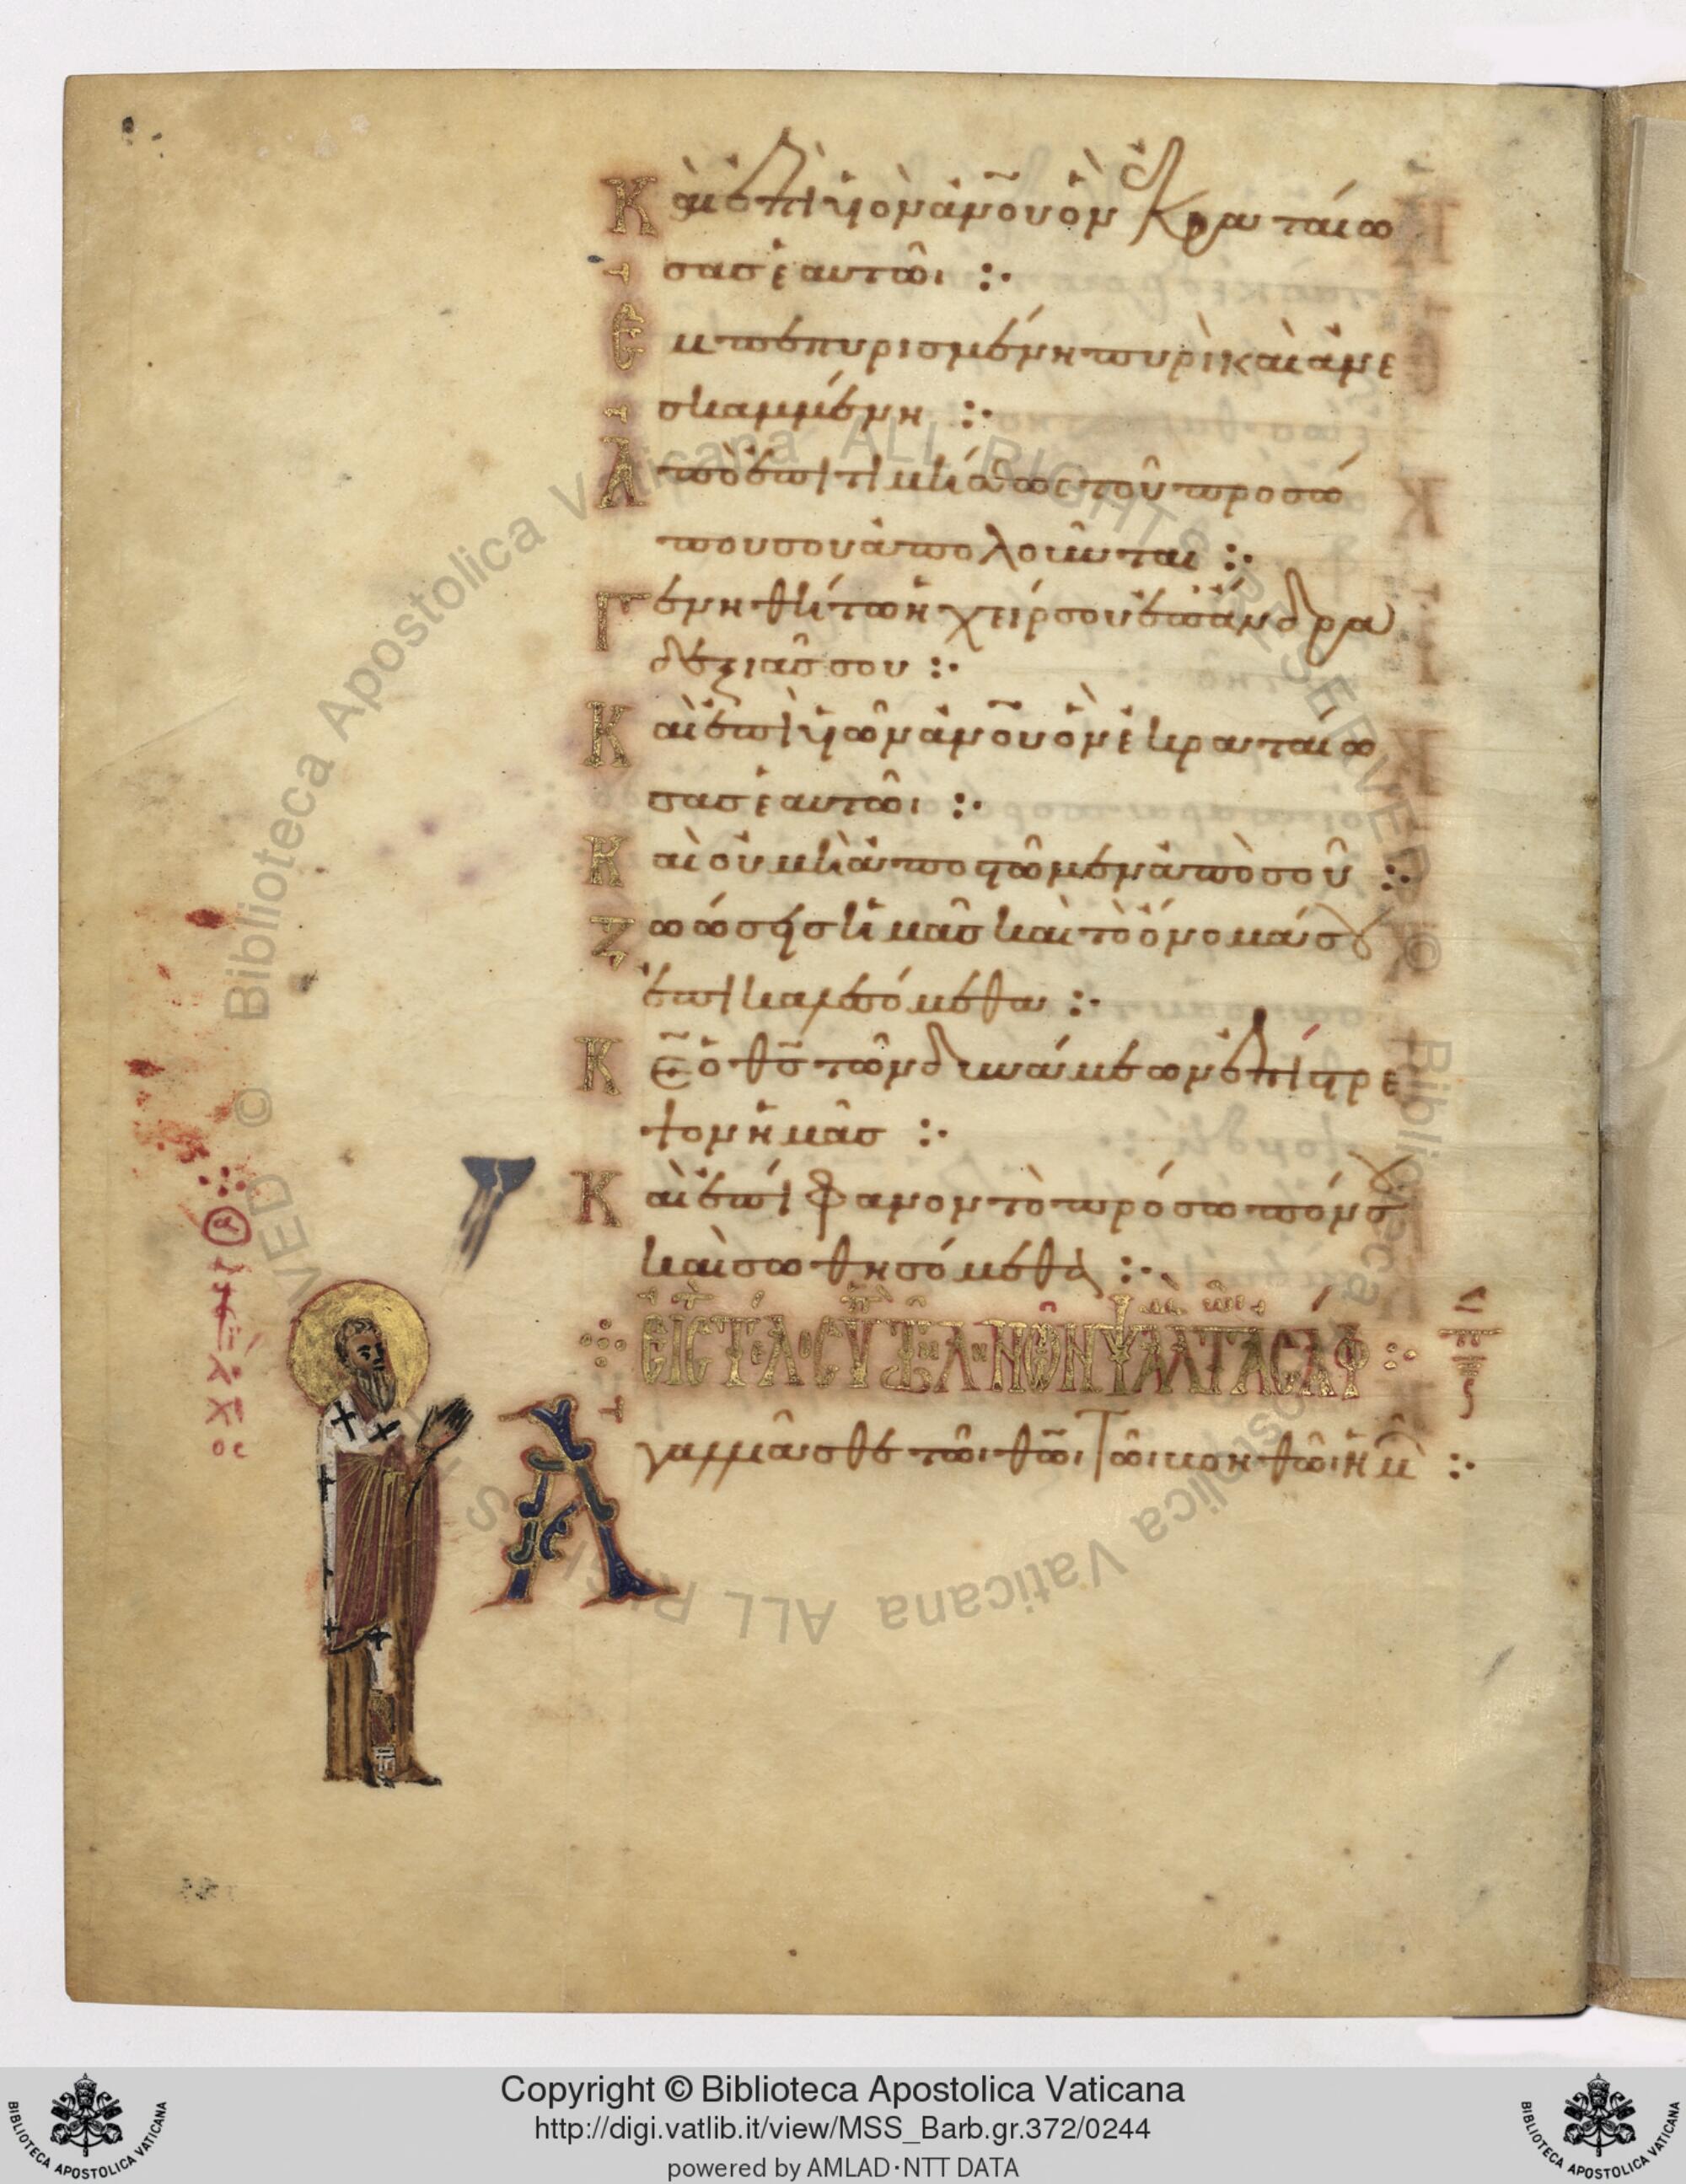 Καὶ ἐπὶ υἱὸν ἀν̅ου ὃν ἐκραταίω
σας ἑαυτῶι :·
Ἐμπεπυρισμένη πυρὶ καὶ ἀνε
σκαμμένη :·
Ἀπὸ ἐπιτιμήσεως τοῦ προσώ
που σου ἀπολοῦνται :·
Γενηθήτω ἡ χείρ σου ἐπ' ἄνδρα
δεξιᾶς σου :·
Καὶ ἐπὶ υἱὸν ἀν̅ου ὃν ἐκραταίω
σας ἑαυτῶι :·
Καὶ οὐ μὴ ἀποστῶμεν ἀπὸ σοῦ :·
Ζωώσεις ἡμᾶς καὶ τὸ ὄνομά σου
ἐπικαλεσόμεθα :·
Κ̅ε̅ ὁ θ̅ς̅ τῶν δυνάμεων ἐπίστρε
ψον ἡμᾶς :·
Καὶ ἐπίφανον τὸ πρόσωπόν σου
καὶ σωθησόμεθα :·
ΕΙΣ ΤΕΛΟΣ ΥΠΕΡ ΤΩΝ ΛΗΝΩΝ ΨΑΛΜΟΣ ΤΩ ΑΣΑΦ :· π
Ἀγαλλιᾶσθε τῶι θ̅ῶ̅ι τῶι βοηθῶι ἡμ :·
Copyright © Biblioteca Apostolica Vaticana
http://digi.vatlib.it/view/MSS_Barb.gr.372/0244
powered by AMLAD·NTT DATA
BIBLIOTECA APOSTOLICA VATICANA
BIBLIOTECA APOSTOLICA VATICANA